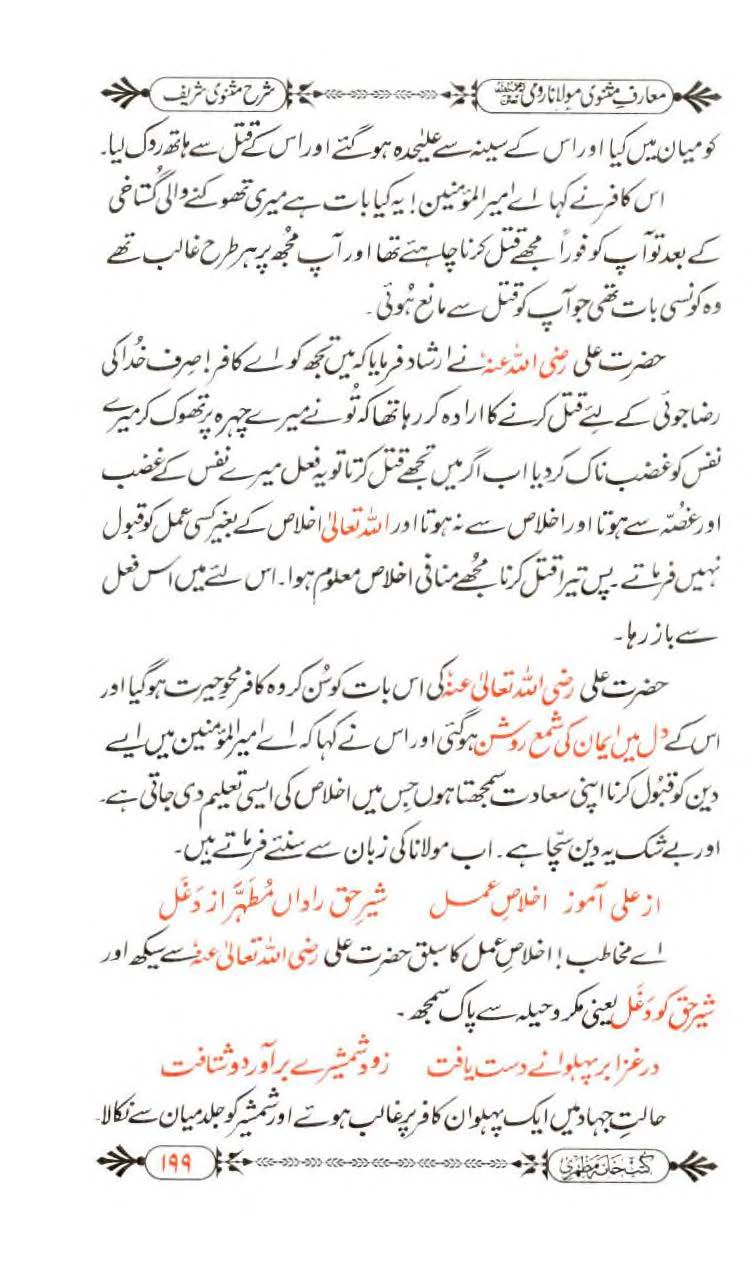 معارفِ مثنوی مولانا رومی شرح مثنوی شریف
کو میان میں کیا اور اس کے سینہ سے علیٰحدہ ہو گئے اور اس کے قتل سے ہاتھ روک لیا۔
اس کافر نے کہا اے امیر المؤمنین! یہ کیا بات ہے میری تھوکنے والی گُستاخی
کے بعد تو آپ کو فوراً مجھے قتل کرنا چاہئے تھا اور آپ مُجھ پر ہر طرح غالب تھے
وہ کونسی بات تھی جو آپ کو قتل سے مانع ہُوئی۔
حضرت علی رضی اللہ عنہٗ نے ارشاد فرمایا کہ میں تجھ کو اے کافر! صِرف خُدا کی
رضا جوئی کے لئے قتل کرنے کا ارادہ کر رہا تھا کہ تُو نے میرے چہرہ پر تھوک کر میرے
نفس کو غضب ناک کر دیا اب اگر میں تجھے قتل کرتا تو یہ فعل میرے نفس کے غضب
اور غصّہ سے ہوتا اور اخلاص سے نہ ہوتا اور اللہ تعالیٰ اخلاص کے بغیر کسی عمل کو قبول
نہیں فرماتے۔ پس تیرا قتل کرنا مُجھے منافی اخلاص معلوم ہوا۔ اس لئے میں اس فعل
سے باز رہا۔
حضرت علی رضی اللہ تعالیٰ عنہٗ کی اس بات کو سُن کر وہ کافر محوِ حیرت ہو گیا اور
اس کے دل میں ایمان کی شمع روشن ہو گئی اور اس نے کہا کہ اے امیر المؤمنین میں ایسے
دین کو قبُول کرنا اپنی سعادت سمجھتا ہوں جِس میں اخلاص کی ایسی تعلیم دی جاتی ہے۔
اور بے شک یہ دین سچّا ہے۔ اب مولانا کی زبان سے سنئے فرماتے ہیں۔
از علی آموز اخلاصِ عمل شیرِ حق را داں مُطَہَّر از دَغَل
اے مخاطب! اخلاصِ عمل کا سبق حضرت علی رضی اللہ تعالیٰ عنہٗ سے سیکھ اور
شیرِ حق کو دَغَل یعنی مکر و حیلہ سے پاک سمجھ۔
در غزا بر پہلوانے دست یافت زود شمشیرے بر آورد و شتافت
حالتِ جہاد میں ایک پہلوان کافر پر غالب ہوئے اور شمشیر کو جلد میان سے نکالا۔
کُتب خانہ مظہری ۱۹۹